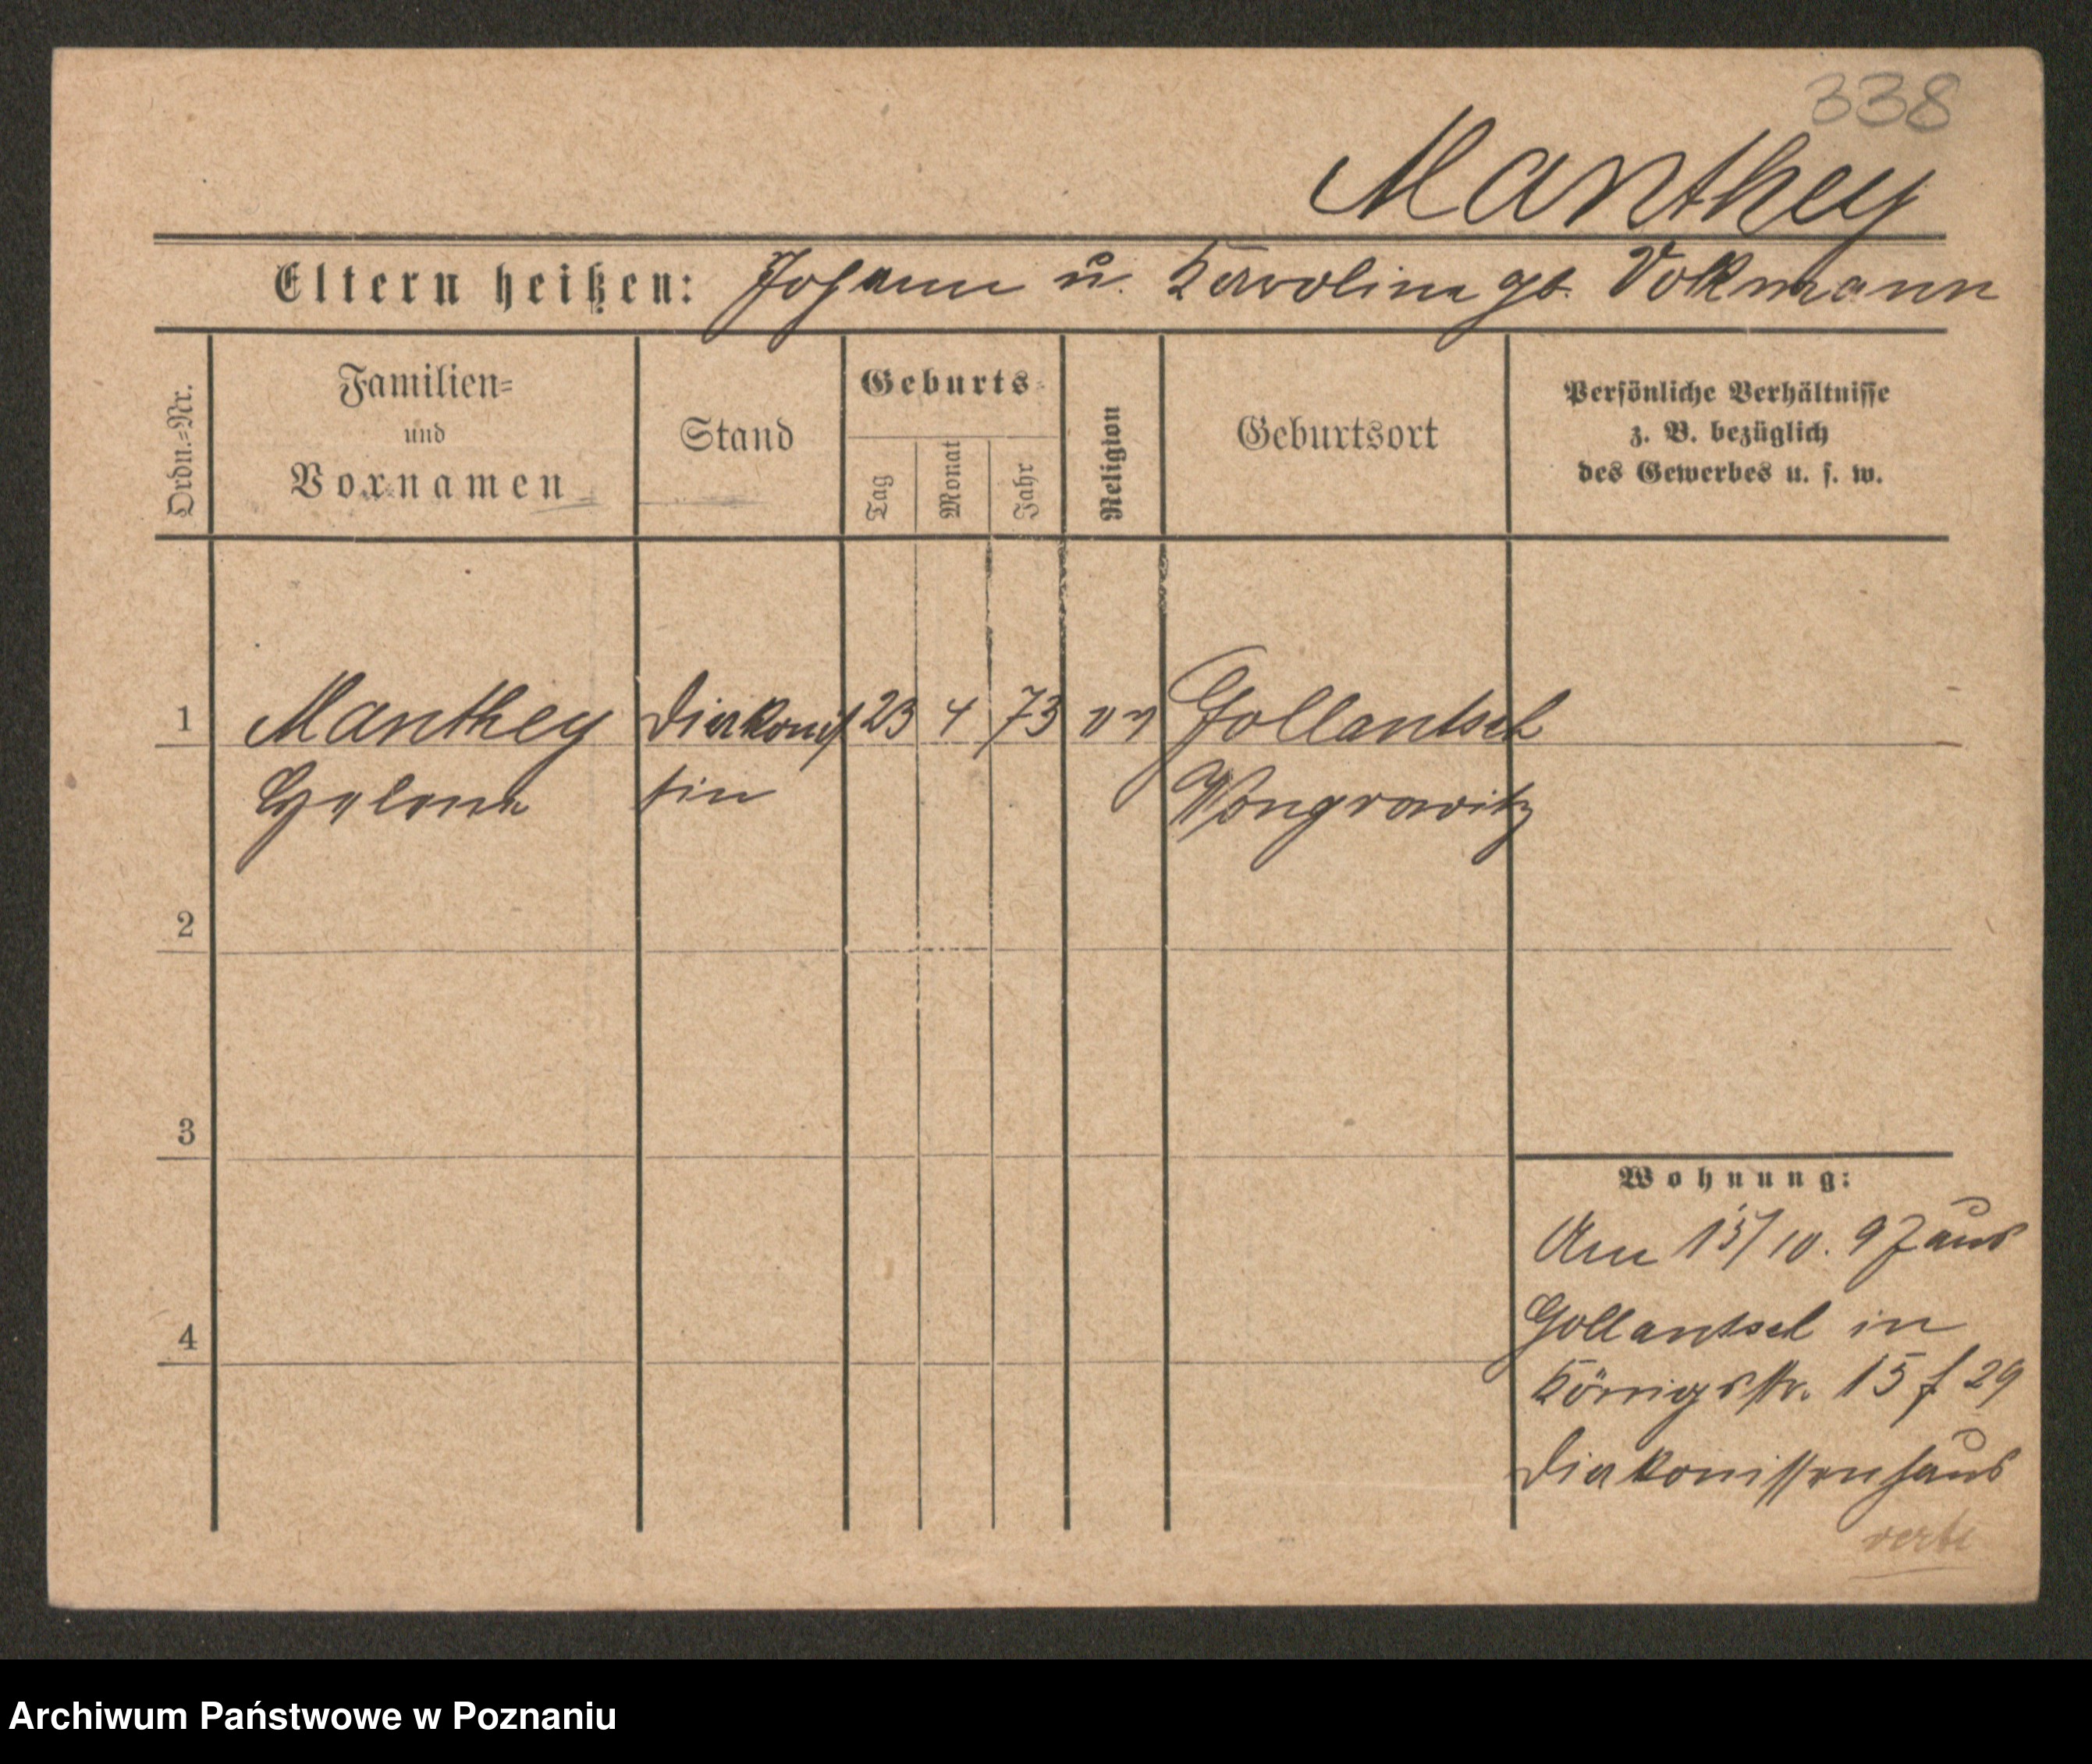 338
Manthey
Eltern heißen: Johann u. Karoline gb. Vokmann
Ordn.=Nr.
Familien=
und
Vornamen
Stand
Geburts=
Tag
Monat
Jahr
Religion
Geburtsort
Persönliche Verhältnisse
z. B. bezüglich
des Gewerbes u. s. w.
1 Manthey Diakonis 23 4 73 ev Gollantsch
Helene sin Wongrowitz
2
3
4
Wohnung:
Am 15/10. 97 aus
Gollantsch in
Königsstr. 15 f 29
Diakonissenhaus
Archiwum Państwowe w Poznaniu